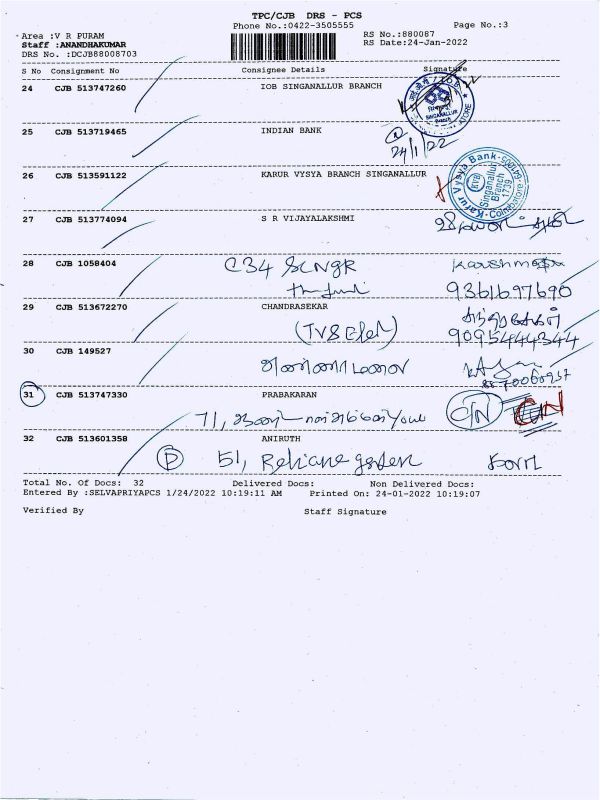 TPC/CJB DRS - PCS
Phone No.:0422-3505555
Page No.:3
Area :V R PURAM
RS No.:880087
Staff :ANANDHAKUMAR
RS Date:24-Jan-2022
DRS No. :DCJB88008703
S No Consignment No Consignee Details Signature
24 CJB 513747260 IOB SINGANALLUR BRANCH
SINGANALLUR
Branch
25 CJB 513719465 INDIAN BANK
24/1/22
26 CJB 513591122 KARUR VYSYA BRANCH SINGANALLUR
Karur Vysya Bank-641005
KVB
Singanallur
Branch
1739
Coimbatore
27 CJB 513774094 S R VIJAYALAKSHMI
28 CJB 1058404 C34
9361697690
29 CJB 513672270 CHANDRASEKAR
(TVS
9095444344
30 CJB 149527
31 CJB 513747330 PRABAKARAN
71,
C/N
32 CJB 513601358 ANIRUTH
D 51, Reliance garden
Total No. Of Docs: 32 Delivered Docs: Non Delivered Docs:
Entered By :SELVAPRIYAPCS 1/24/2022 10:19:11 AM Printed On: 24-01-2022 10:19:07
Verified By Staff Signature